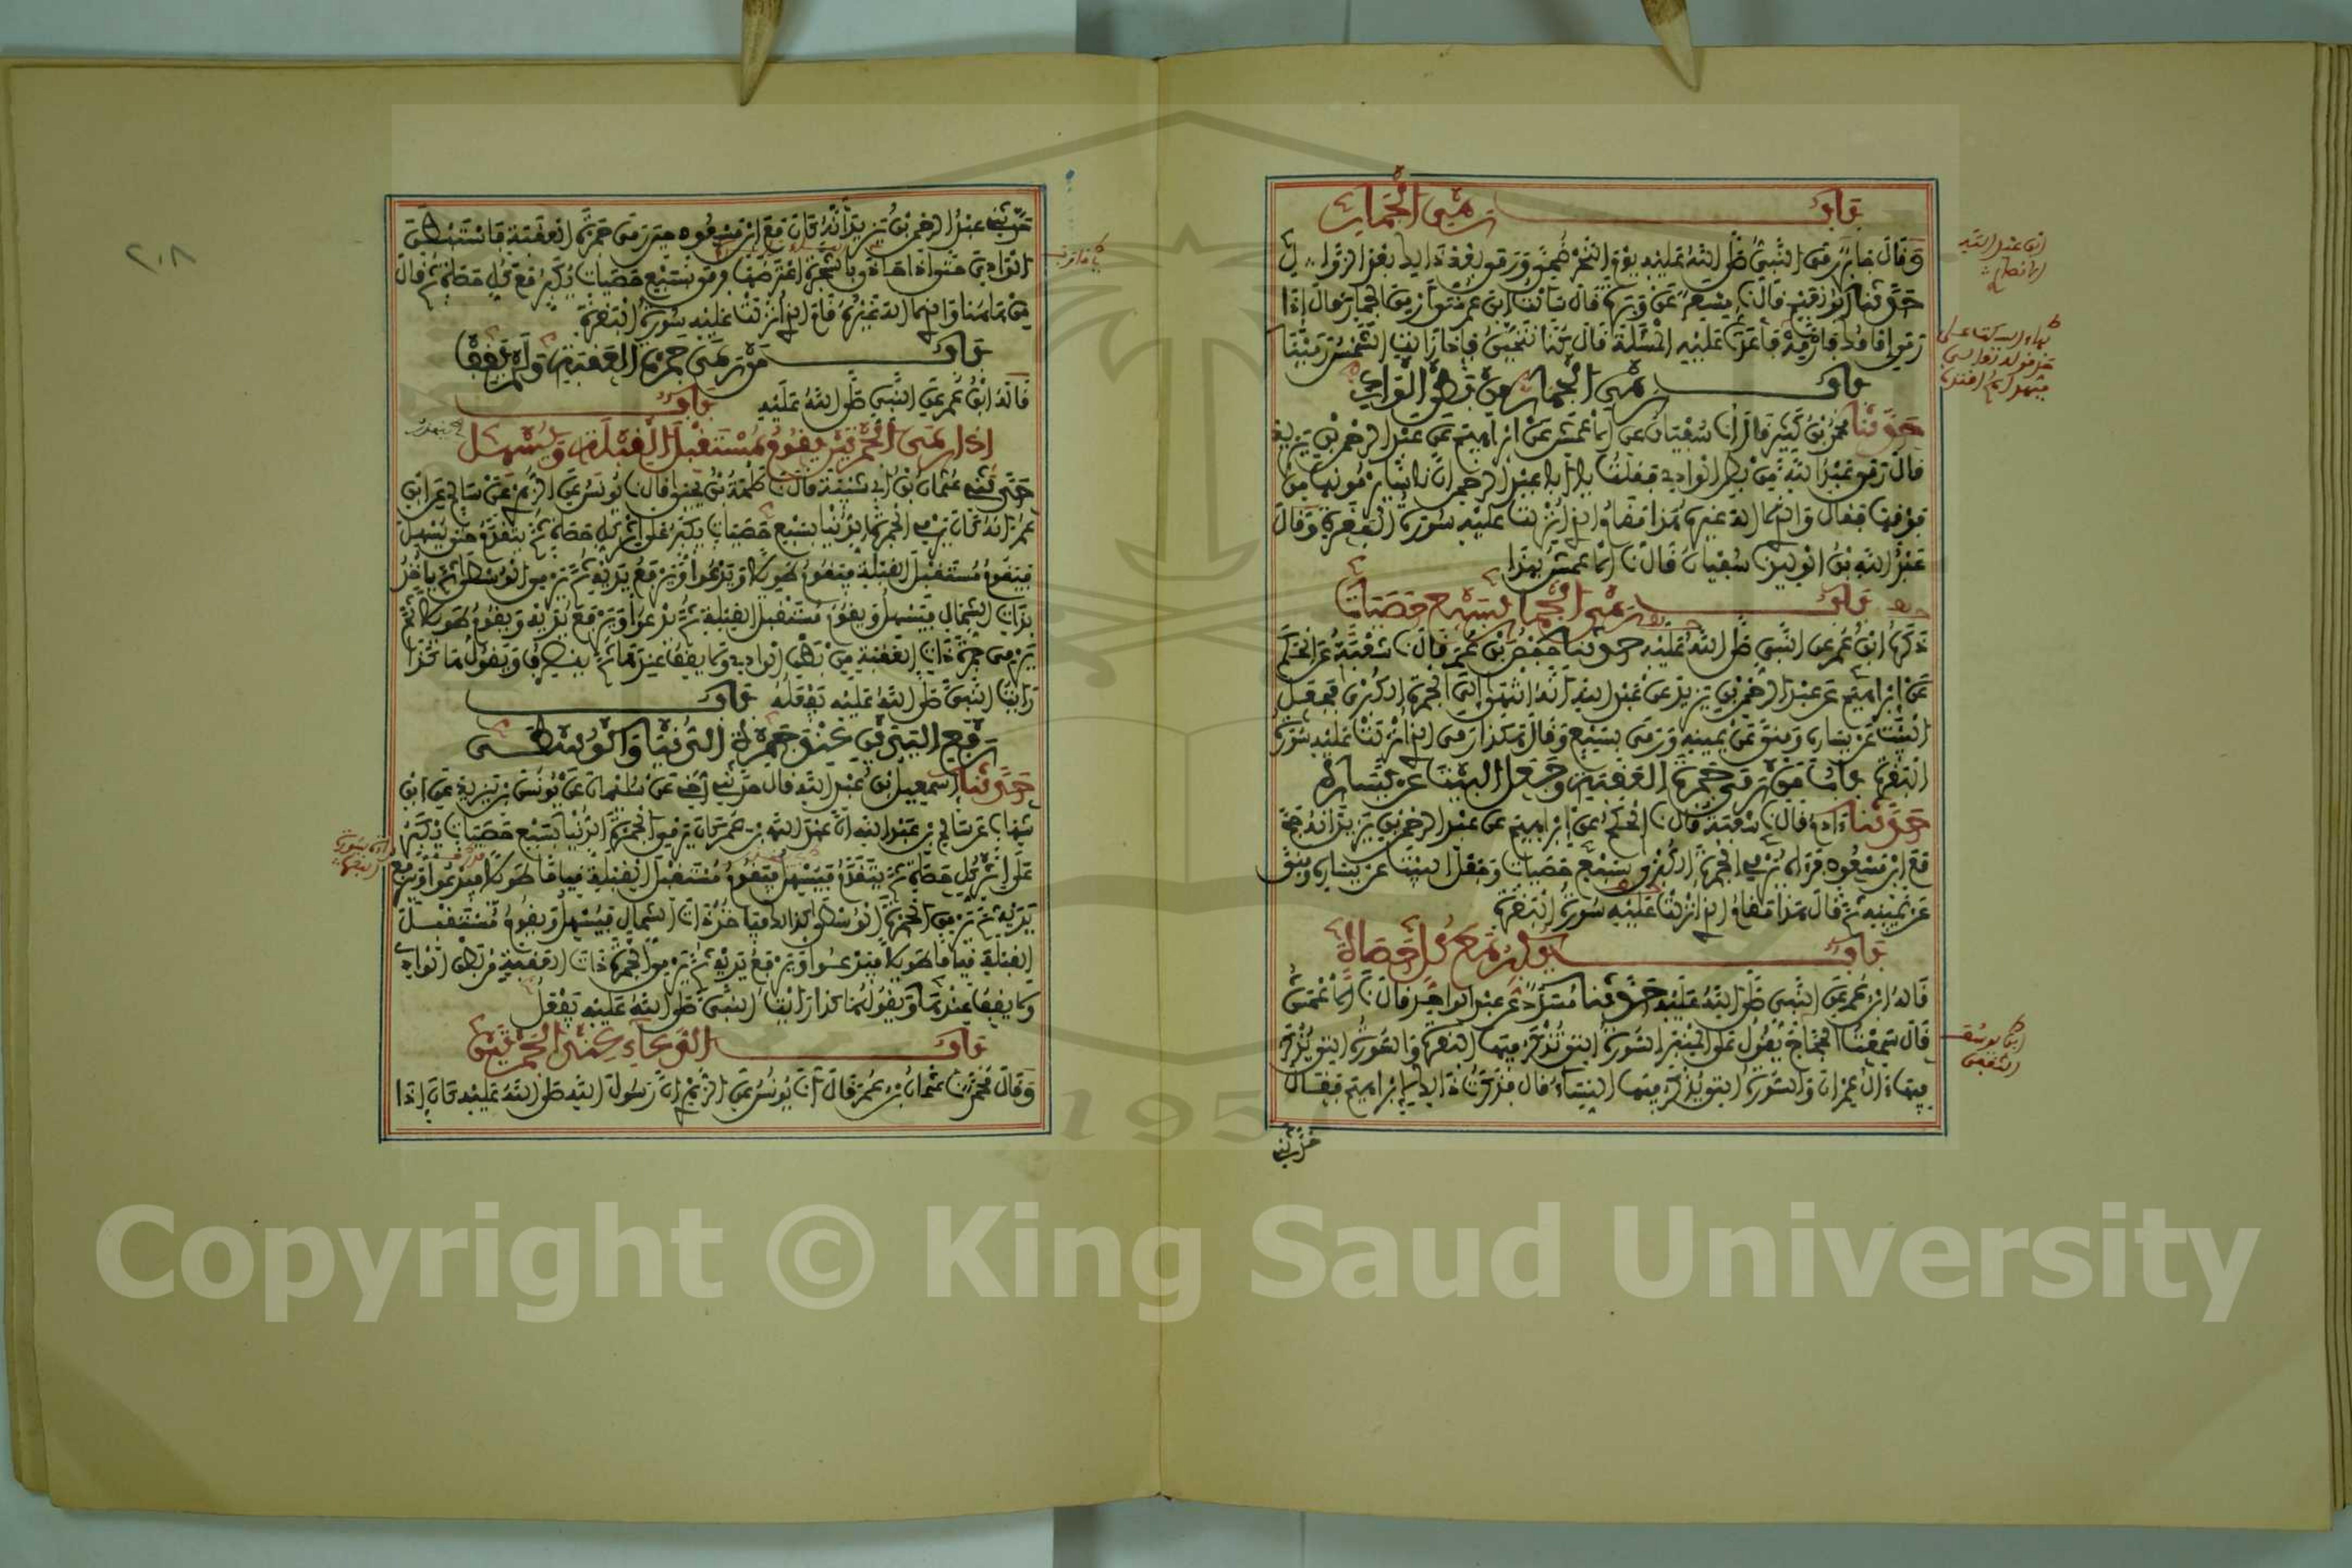 باب رمي الجمار
وقال جابر رمى النبي صلى الله عليه يوم النحر ضحى ورمى بعد ذلك بعد الزوال
حدثنا أبو نعيم قال نا مسعر عن وبرة قال سألت ابن عمر متى أرمي الجمار قال إذا
رمى إمامك فارمه فأعدت عليه المسئلة قال كنا نتحين فإذا زالت الشمس رمينا
باب رمي الجمار من بطن الوادي
حدثنا محمد بن كثير قال أنا سفيان عن الأعمش عن إبراهيم عن عبد الرحمن بن يزيد
قال رمى عبد الله من بطن الوادي فقلت يا أبا عبد الرحمن إن ناسا يرمونها من
فوقها فقال والذي لا إله غيره هذا مقام الذي أنزلت عليه سورة البقرة وقال
عبد الله بن الوليد نا سفيان قال نا الأعمش بهذا
باب رمي الجمار بسبع حصيات
ذكره ابن عمر عن النبي صلى الله عليه حدثنا حفص بن عمر قال نا شعبة عن الحكم
عن إبراهيم عن عبد الرحمن بن يزيد عن عبد الله أنه انتهى إلى الجمرة الكبرى فجعل
البيت عن يساره ومنى عن يمينه ورمى بسبع وقال هكذا رمى الذي أنزلت عليه سورة
البقرة باب من رمى جمرة العقبة وجعل البيت عن يساره
حدثنا آدم قال نا شعبة قال نا الحكم عن إبراهيم عن عبد الرحمن بن يزيد أنه حج
مع ابن مسعود فرآه يرمي الجمرة الكبرى بسبع حصيات وجعل البيت عن يساره ومنى
عن يمينه ثم قال هذا مقام الذي أنزلت عليه سورة البقرة
باب يكبر مع كل حصاة
قاله ابن عمر عن النبي صلى الله عليه حدثنا مسدد عن عبد الواحد قال نا الأعمش
قال سمعت الحجاج يقول على المنبر السورة التي تذكر فيها البقرة والسورة التي يذكر
فيها آل عمران والسورة التي يذكر فيها النساء قال فذكرت ذلك لإبراهيم فقال
حدثني
ابن عبد الله
الأنصاري
ابن يوسف
الثقفي
٢٠٨
حدثني عبد الرحمن بن يزيد أنه كان مع ابن مسعود حين رمى جمرة العقبة فاستبطن
الوادي حتى إذا حاذى بالشجرة اعترضها فرمى بسبع حصيات يكبر مع كل حصاة ثم قال
من هاهنا والذي لا إله غيره قام الذي أنزلت عليه سورة البقرة
باب من رمى جمرة العقبة ولم يقف
قاله ابن عمر عن النبي صلى الله عليه باب
إذا رمى الجمرتين يقوم مستقبل القبلة ويسهل
حدثني عثمان بن أبي شيبة قال نا طلحة بن يحيى قال نا يونس عن الزهري عن سالم عن ابن
عمر أنه كان يرمي الجمرة الدنيا بسبع حصيات يكبر على إثر كل حصاة ثم يتقدم حتى يسهل
فيقوم مستقبل القبلة فيقوم طويلا ويدعوا ويرفع يديه ثم يرمي الوسطى ثم يأخذ
بذات الشمال فيسهل ويقوم مستقبل القبلة ثم يدعوا ويرفع يديه ويقوم طويلا ثم
يرمي جمرة ذات العقبة من بطن الوادي ولا يقف عندها ثم ينصرف ويقول هاكذا
رأيت النبي صلى الله عليه يفعله باب
رفع اليدين عند جمرة الدنيا والوسطى
حدثنا إسمعيل بن عبد الله قال حدثني أخي عن سليمان عن يونس بن يزيد عن ابن
شهاب عن سالم بن عبد الله أن عبد الله بن عمر كان يرمي الجمرة الدنيا بسبع حصيات يكبر
على إثر كل حصاة ثم يتقدم فيسهل فيقوم مستقبل القبلة قياما طويلا فيدعوا ويرفع
يديه ثم يرمي الجمرة الوسطى كذلك فيأخذ ذات الشمال فيسهل ويقوم مستقبل
القبلة قياما طويلا فيدعوا ويرفع يديه ثم يرمي الجمرة ذات العقبة من بطن الوادي
ولا يقف عندها ويقول هاكذا رأيت النبي صلى الله عليه يفعل
باب الدعاء عند الجمرتين
وقال محمد نا عثمان بن عمر قال أنا يونس عن الزهري أن رسول الله صلى الله عليه كان إذا
Copyright © King Saud University
195